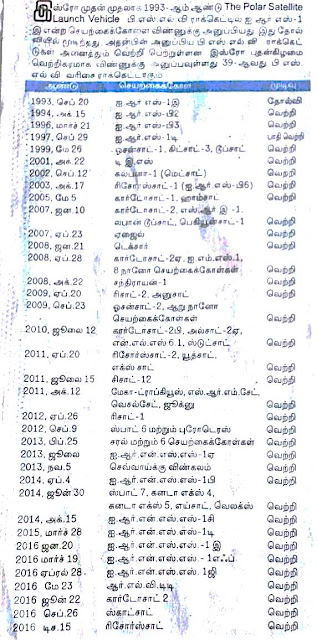 இஸ்ரோ முதன் முதலாக 1993-ஆம் ஆண்டு The Polar Satellite
Launch Vehicle பி.எஸ்.எல் வி ராக்கெட்டில் ஐ ஆர் எஸ்-1
இ என்ற செயற்கைக்கோளை விண்ணுக்கு அனுப்பியது இது தோல்
வியில் முடிந்தது. அதற்பின் அனுப்பிய பி எஸ் எல் வி ராக்கெட்
டுகள் அனைத்தும் வெற்றி பெற்றுள்ளன. இஸ்ரோ புதன்கிழமை
வெற்றிகரமாக விண்ணுக்கு அனுப்பவுள்ளது 39-ஆவது பி.எஸ்.
எல் வி வரிசை ராக்கெட்டாகும்
ஆண்டு செயற்கைக்கோள் முடிவு
1993, செப் 20 ஐ ஆர் எஸ்-1இ தோல்வி
1994, அக்.15 ஐ ஆர் எஸ்-பி2 வெற்றி
1996, மார்ச் 21 ஐ ஆர் எஸ்-பி3 வெற்றி
1997, செப் 29 ஐ ஆர் எஸ்-1டி பாதி வெற்றி
1999, மே 26 ஓசன்சாட்-1, கிட்சாட்-3, டூப்சாட் வெற்றி
2001, அக்.22 டி இ.எஸ் வெற்றி
2002, செப்.12 கல்பனா-1 (மெட்சாட்) வெற்றி
2003, அக்.17 ரிசோர்ஸ்சாட்-1 (ஐ.ஆர்.எஸ்-பி6) வெற்றி
2005, மே 5 கார்டோசாட்-1, ஹாம்சாட் வெற்றி
2007, ஜன.10 கார்டோசாட்-2, எஸ்.ஆர் இ -1.
லபான் டூப்சாட், பெகியூன்சாட்-1 வெற்றி
2007, ஏப்.23 ஏஜைல் வெற்றி
2008, ஜன.21 டெக்சார் வெற்றி
2008, ஏப்.28 கார்டோசாட்-2ஏ, ஐ எம்.எஸ்.1,
8 நானோ செயற்கைக்கோள்கள் வெற்றி
2008, அக்.22 சந்திரயான்-1 வெற்றி
2009, ஏப்.20 ரிசாட்-2, அனுசாட் வெற்றி
2009, செப்.23 ஓசன்சாட்-2, ஆறு நானோ
செயற்கைக்கோள்கள் வெற்றி
2010, ஜூலை 12 கார்டோசாட்-2பி, அல்சாட்-2ஏ,
என்.எல்.எஸ் 6.1, ஸ்டுட்சாட் வெற்றி
2011, ஏப்.20 ரிசோர்ஸ்சாட்-2, யூத்சாட்,
எக்ஸ் சாட் வெற்றி
2011, ஜூலை 15 ஜிசாட்-12 வெற்றி
2011, அக்.12 மேகா-ட்ராப்கியூஸ், எஸ்.ஆர்.எம்.சேட்,
வெசல்சேட், ஜூக்னு வெற்றி
2012, ஏப்.26 ரிசாட்-1 வெற்றி
2012, செப்.9 ஸ்பாட் 6 மற்றும் புரோடெரஸ் வெற்றி
2013, பிப்.25 சரல் மற்றும் 6 செயற்கைகோள்கள் வெற்றி
2013, ஜூலை ஐ.ஆர்.என்.எஸ்.எஸ்-1ஏ வெற்றி
2013, நவ.5 செவ்வாய்க்கு விண்கலம் வெற்றி
2014, ஏப்.4 ஐ.ஆர்.என்.எஸ்.எஸ்-1பி வெற்றி
2014, ஜூன் 30 ஸ்பாட் 7, கனடா எக்ஸ் 4,
கனடா எக்ஸ் 5, எய்சாட், வெலக்ஸ் வெற்றி
2014, அக்.15 ஐ.ஆர்.என்.எஸ்.எஸ்-1சி வெற்றி
2015, மார்ச் 28 ஐ.ஆர்.என்.எஸ்.எஸ்-1டி வெற்றி
2016 ஜன.20 ஐ.ஆர்.என்.எஸ்.எஸ். -1 இ வெற்றி
2016 மார்ச் 19 ஐ.ஆர்.என்.எஸ்.எஸ். - 1எஃப் வெற்றி
2016 ஏப்ரல் 28 ஐ.ஆர்.என்.எஸ்.எஸ். 1ஜி வெற்றி
2016 மே 23 ஆர்.எல்.வி.டிடி வெற்றி
2016 ஜூன் 22 கார்டோசாட் 2 வெற்றி
2016 செப்.26 ஸ்காட்சாட் வெற்றி
2016 டிச.15 ரிசோர்ஸ்சாட் வெற்றி